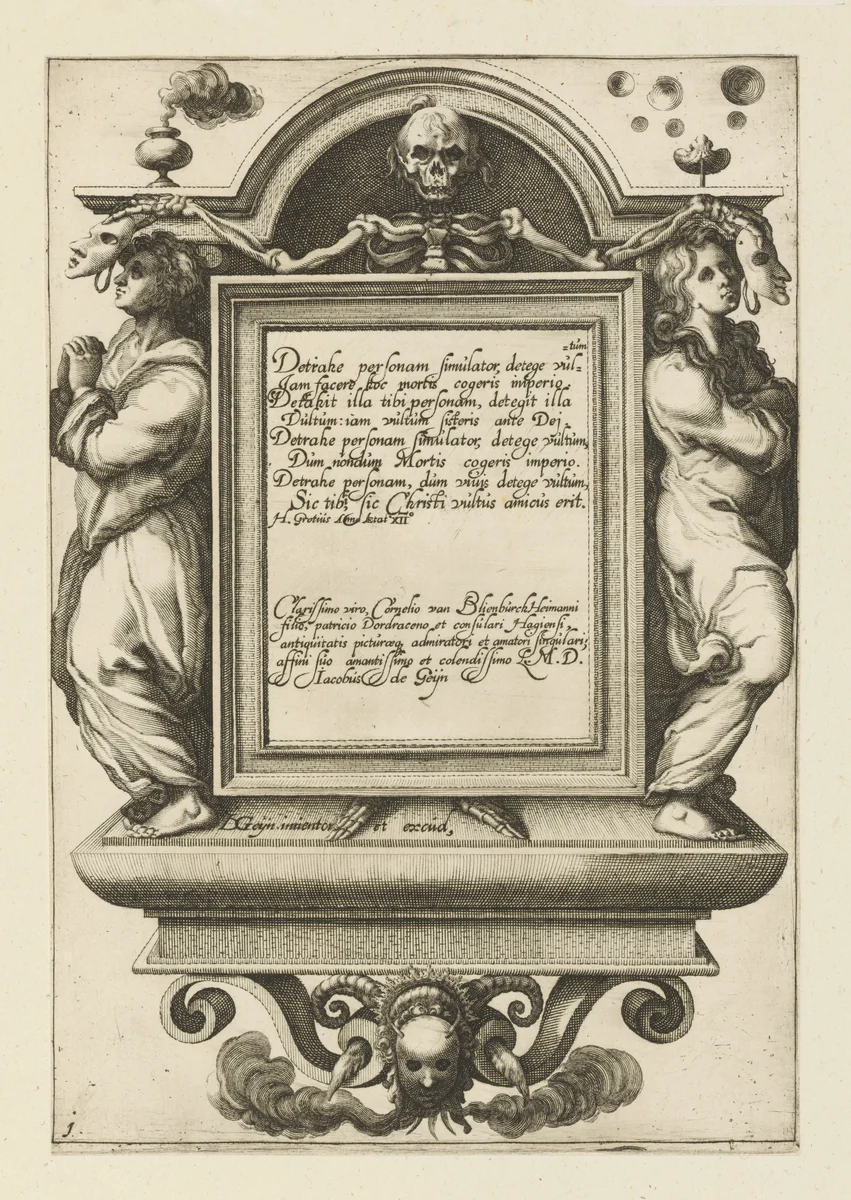 Detrahe personam simulator, detege vul=
=tum
Iam facere hoc mortis cogeris imperio.
Detrahit illa tibi personam, detegit illa
Vultum: iam vultum sisteris ante Dei.
Detrahe personam simulator, detege vultum,
Dum nondum Mortis cogeris imperio.
Detrahe personam, dum viuis detege vultum,
Sic tibi, sic Christi vultus amicus erit.
H. Grotius Anno Aetat XII°
Clarissimo viro, Cornelio van Blienburch Heimanni
filio, patricio Dordraceno et consulari Hagiensi,
antiquitatis picturæq; admiratori et amatori singulari;
affini suo amantissimo et colendissimo L. M. D.
Iacobus de Geijn
DGeijn inuentor et excud,
1.